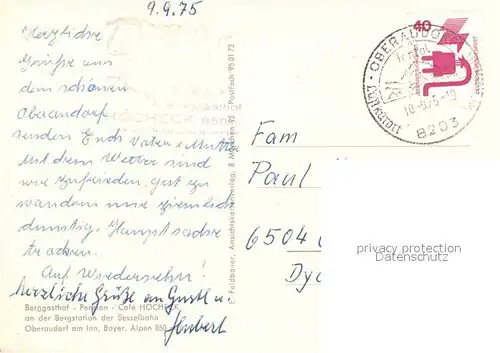 9.9.75
Herzliche
Grüße aus
dem schönen
Oberaudorf
senden Euch Vater u. Mutter
Mit dem Wetter sind
wir zufrieden, gut zu
wandern nur ziemlich
dunstig, Hauptsache
trocken.
Auf Wiedersehn!
herzliche Grüße an Gustl u.
Herbert
Berggasthof - Pension - Café HOCHECK
an der Bergstation der Sesselbahn
Oberaudorf am Inn, Bayer. Alpen 850
Feldbauer, Ansichtskartenverlag, 8 München 95 · Postfach 950172
40
OBERAUDORF
Luftkurort
8203
Fam
Paul
6504
privacy protection
Datenschutz